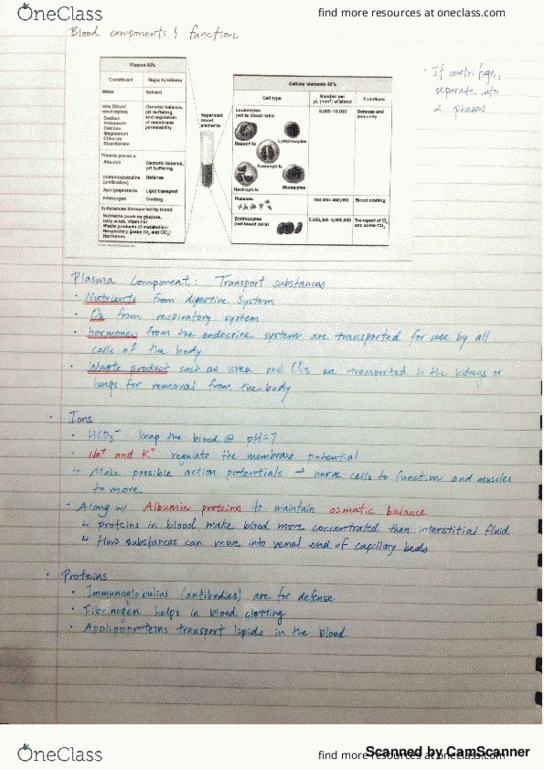 OneClass
find more resources at oneclass.com
Blood components & function
· If centrifuge,
separate into
2 phases
Plasma 55%
Constituent Major functions
Water Solvent
Ions (blood electrolytes)
Sodium
Potassium
Calcium
Magnesium
Chloride
Bicarbonate
Osmotic balance,
pH buffering,
and regulation
of membrane
permeability
Plasma proteins
Albumin Osmotic balance,
pH buffering
Immunoglobulins
(antibodies) Defense
Apolipoproteins Lipid transport
Fibrinogen Clotting
Substances transported by blood
Nutrients (such as glucose,
fatty acids, vitamins)
Waste products of metabolism
Respiratory gases (O2 and CO2)
Hormones
Separated
blood
elements
Cellular elements 45%
Cell type
Number per
µL (mm³) of blood
Functions
Leukocytes
(white blood cells)
5,000–10,000
Defense and
immunity
Basophils
Lymphocytes
Eosinophils
Neutrophils
Monocytes
Platelets
250,000–400,000
Blood clotting
Erythrocytes
(red blood cells)
5,000,000–6,000,000
Transport of O2
and some CO2
Plasma Component: Transport substances
· Nutrients from digestive system
· O2 from respiratory system
· hormones from the endocrine system are transported for use by all
cells of the body
· Waste product such as urea and CO2 are transported to the kidneys or
lungs for removal from the body
· Ions
· HCO3⁻ keep the blood @ pH=7
· Na⁺ and K⁺ regulate the membrane potential
↳ Make possible action potentials → nerve cells to function and muscles
to move
· Along w/ Albumin proteins to maintain osmatic balance
↳ proteins in blood make blood more concentrated than interstitial fluid
↳ How substances can move into venal end of capillary beds
· Proteins
· Immunoglobulins (antibodies) are for defense
· Fibrinogen helps in blood clotting
· Apolipoproteins transport lipids in the blood
OneClass
find more resources at oneclass.com
Scanned by CamScanner